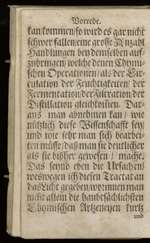 Vorrede.
kan kommen/ so wird es gar nicht
schwer fallen/ eine große Anzahl
Handlungen bey denselben auf-
zubringen/ welche denen Chymi-
schen Operationen/ als/ der Cir-
culation der Feuchtigkeiten/ der
Fermentation der Filtration der
Distillation gleichkommen. Dar-
aus man abnehmen kan/ wie
nützlich diese Wissenschafft sey/
und wie sehr man sich bearbei-
ten müsse/ daß man sie deutlicher
als sie bißher gewesen/ mache.
Das seynd eben die Ursachen/
weswegen ich diesen Tractat an
das Licht gegeben/ worinnen man
nicht allein die handtsächlichsten
Chymischen Artzeneyen kurtz
und